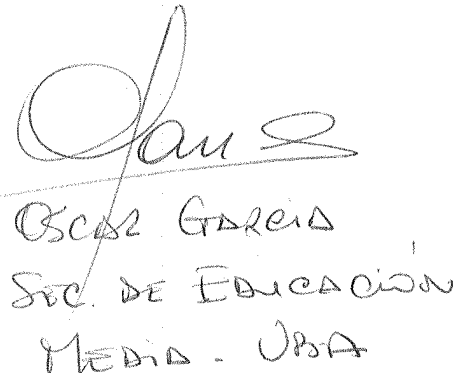 Oscar Garcia
Sec. de Educación
Media - UBA